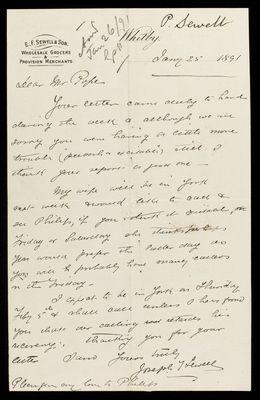 P. Sewell
Jan 26/91
E. F. SEWELL & SON.
WHOLESALE GROCERS
&
PROVISION MERCHANTS.
Whitby,
Jany 25 1891
Dear Mr Pope
Your letter came duly to hand
during the week & although we are
sorry you were having a little more
trouble still I
think your report a good one —
My wife will be in York
next week & would like to call &
see Philip, if you think it suitable, on
Friday or Saturday she thinks perhaps
you would prefer the latter day as
you will probably have many callers
on the Friday.
I expect to be in York on Thursday
Feby 5th & shall call unless I hear from
you that our calling will retard his
recovery. Thanking you for your
letter I am Yours truly
Joseph J Sewell
Please give my love to Philip